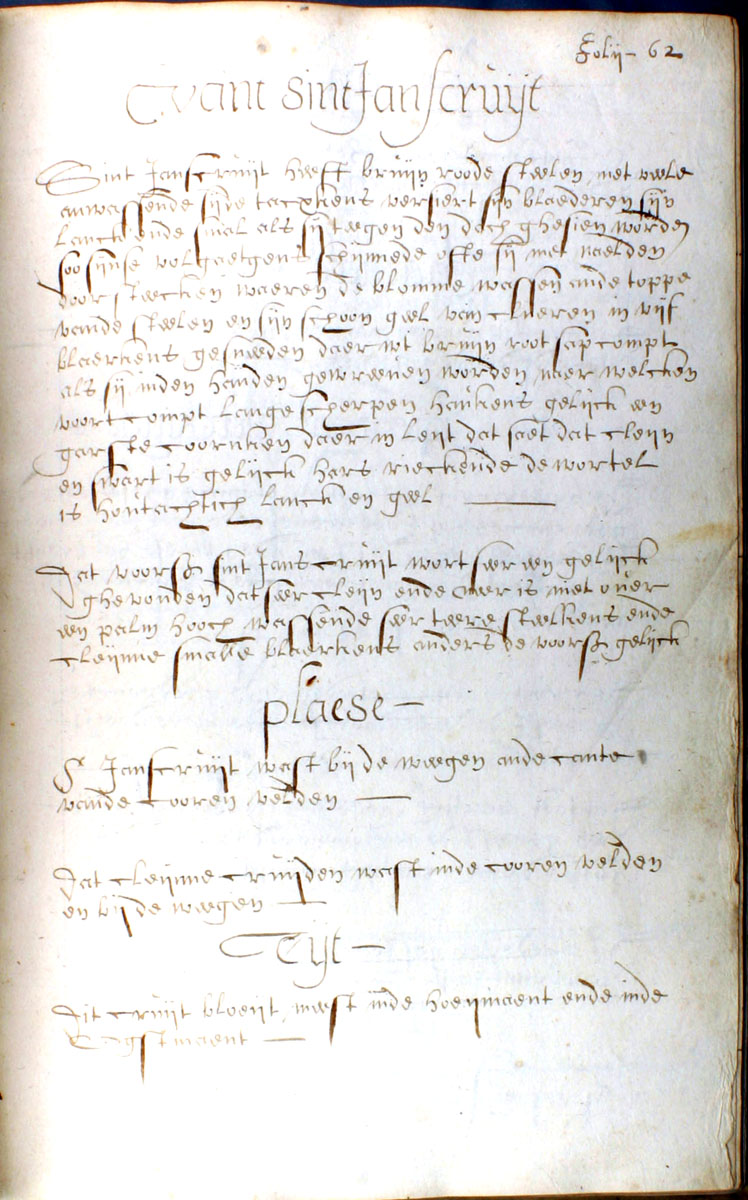 Folij - 62
Vant sint Janscruijt
Sint Janscruijt heeft bruijn roode steelen, met veele
aenwassende sijde tacxkens versiert sijn blaederen sijn
lanck ende smal als sij teegen den dach ghesien worden
soo sijnse vol gaetgens schijnnede ofte sij met naelden
doorsteecken waeren de blomme wassen ande toppe
vande steelen en sijn schoon geel van cleeren in vijf
blaerkens gesneeden daer wt bruijn root sap compt
als sij inden handen gewreeven worden naer welcken
voortcompt lange scherpen haukens gelijck een
garste coornken daer in leijt dat saet dat cleijn
en swart is gelijck hars rieckende de wortel
is houtachtich lanck en geel
Dat voorsz sint Janscruijt wort seer een gelijck
ghevonden dat seer cleijn ende neer is niet over
een palm hooch wassende seer teere steelkens ende
cleijnne smalle blaerkens anders de voorsz gelijck
plaese -
St Janscruijt wast bij de weegen ande cante
vande cooren velden
Dat cleijnne cruijden wast inde cooren velden
en bij de weegen
Tijt -
Dit cruijt bloeijt meest inde hoeijmaent ende inde
Ogstmaent